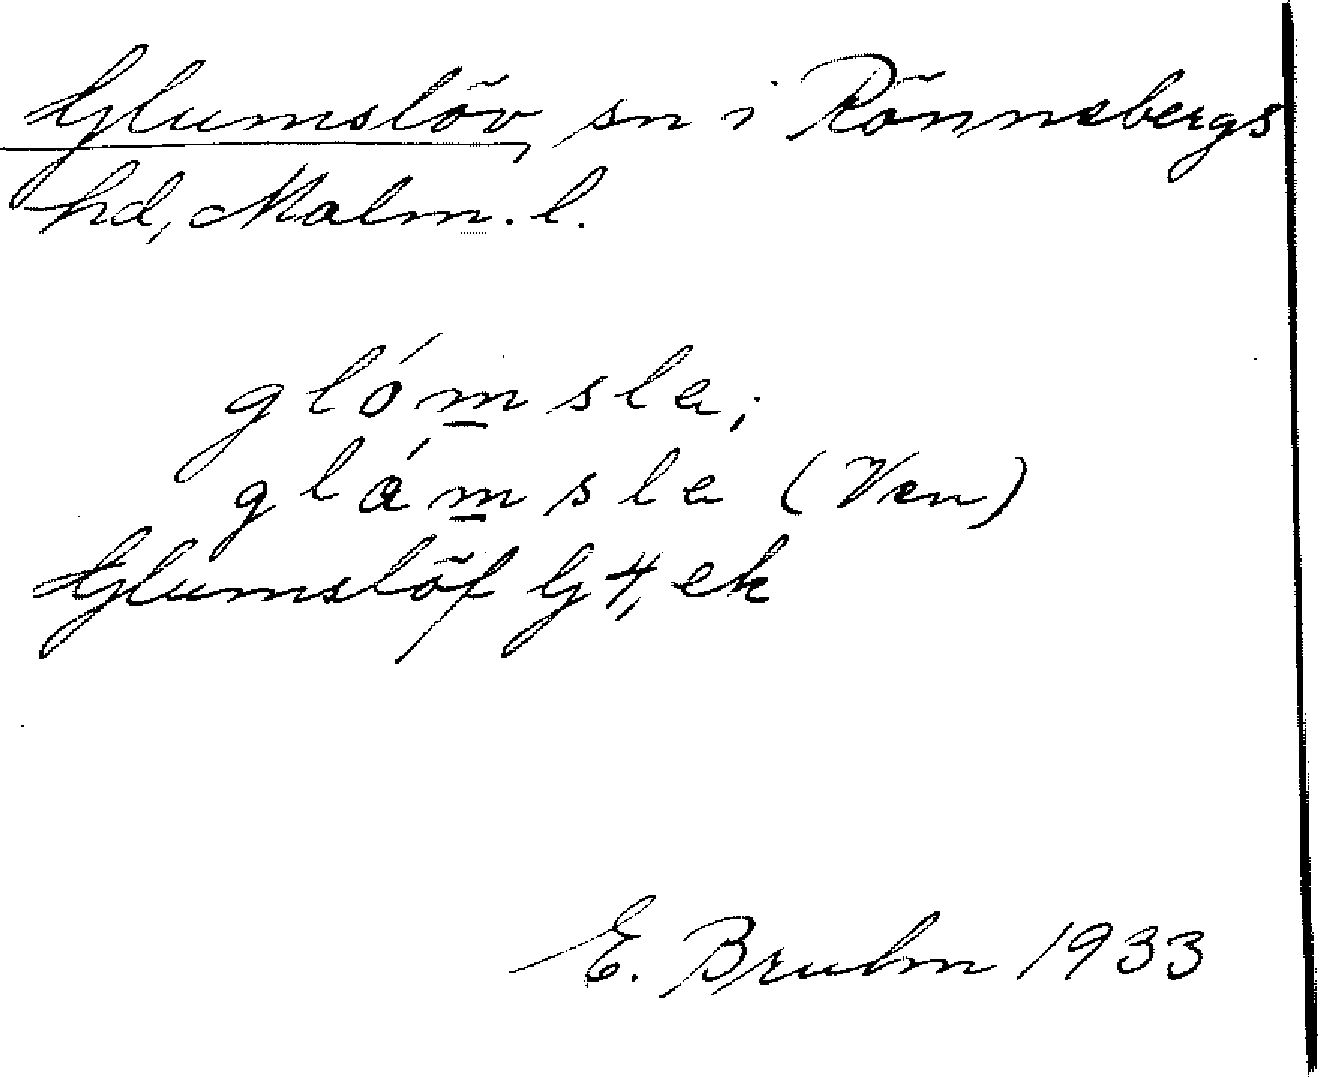 Glumslöv, sn i Rönnebergs
hd, Malm. l.
glómsla;
glámsla (Ven)
Glumslöf G4, ek
E. Bruhn 1933